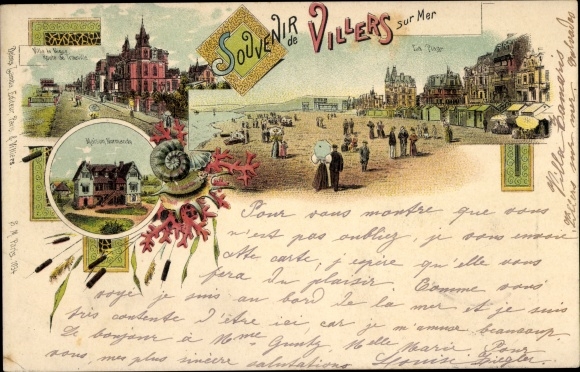 SOUVENIR de VILLERS sur Mer
Route de Trouville
La Plage
Maison Normande
Pour vous montre que vous
n'est pas oubliez, je vous envoie
cette carte, j'epire qu'elle vous
fera du plaisir. Comme vous
voye je suis au bord de la mer et je suis
très contente d'être ici, car je m'amuse beaucoup.
bonjour à Mme Guntz, Melle Marie. Pour
vous, mes plus sincère salutations Louise Ziegler
Villers sur mer